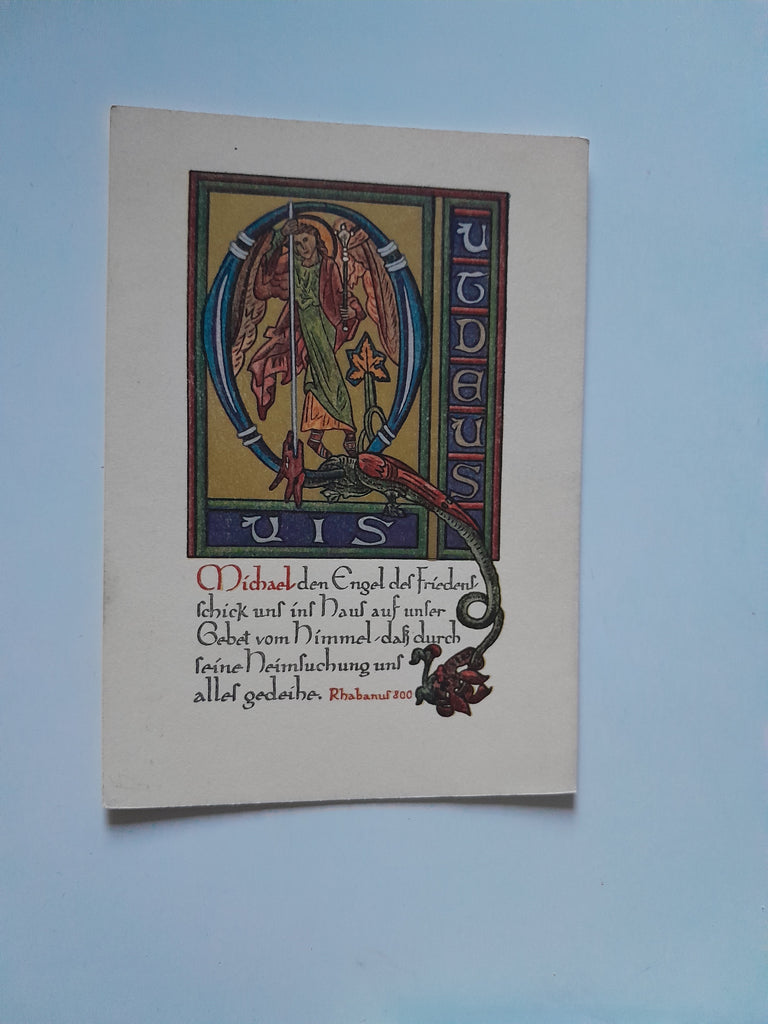 QUIS
UT DEUS
Michael den Engel des Friedens
schick uns ins Haus auf unser
Gebet vom Himmel, daß durch
seine Heimsuchung uns
alles gedeihe. Rhabanus 800